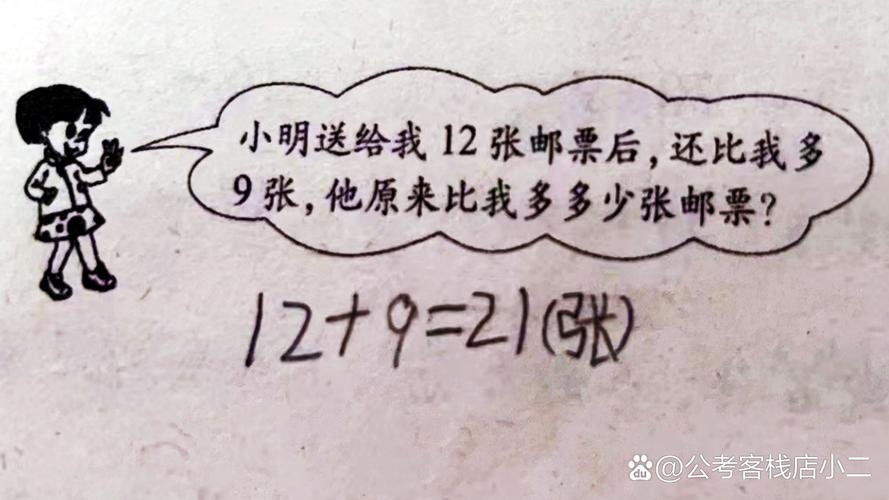 小明送给我 12 张邮票后，还比我多
9 张，他原来比我多多少张邮票？
12+9=21(张)
@公考客栈店小二